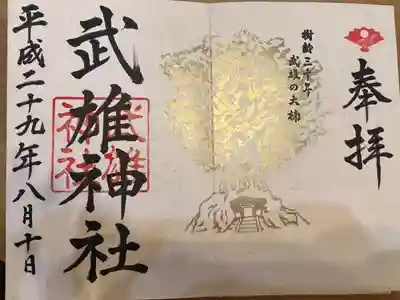 奉拝
樹齢三千年
武雄の大楠
武雄神社
武雄神社
平成二十九年八月十日